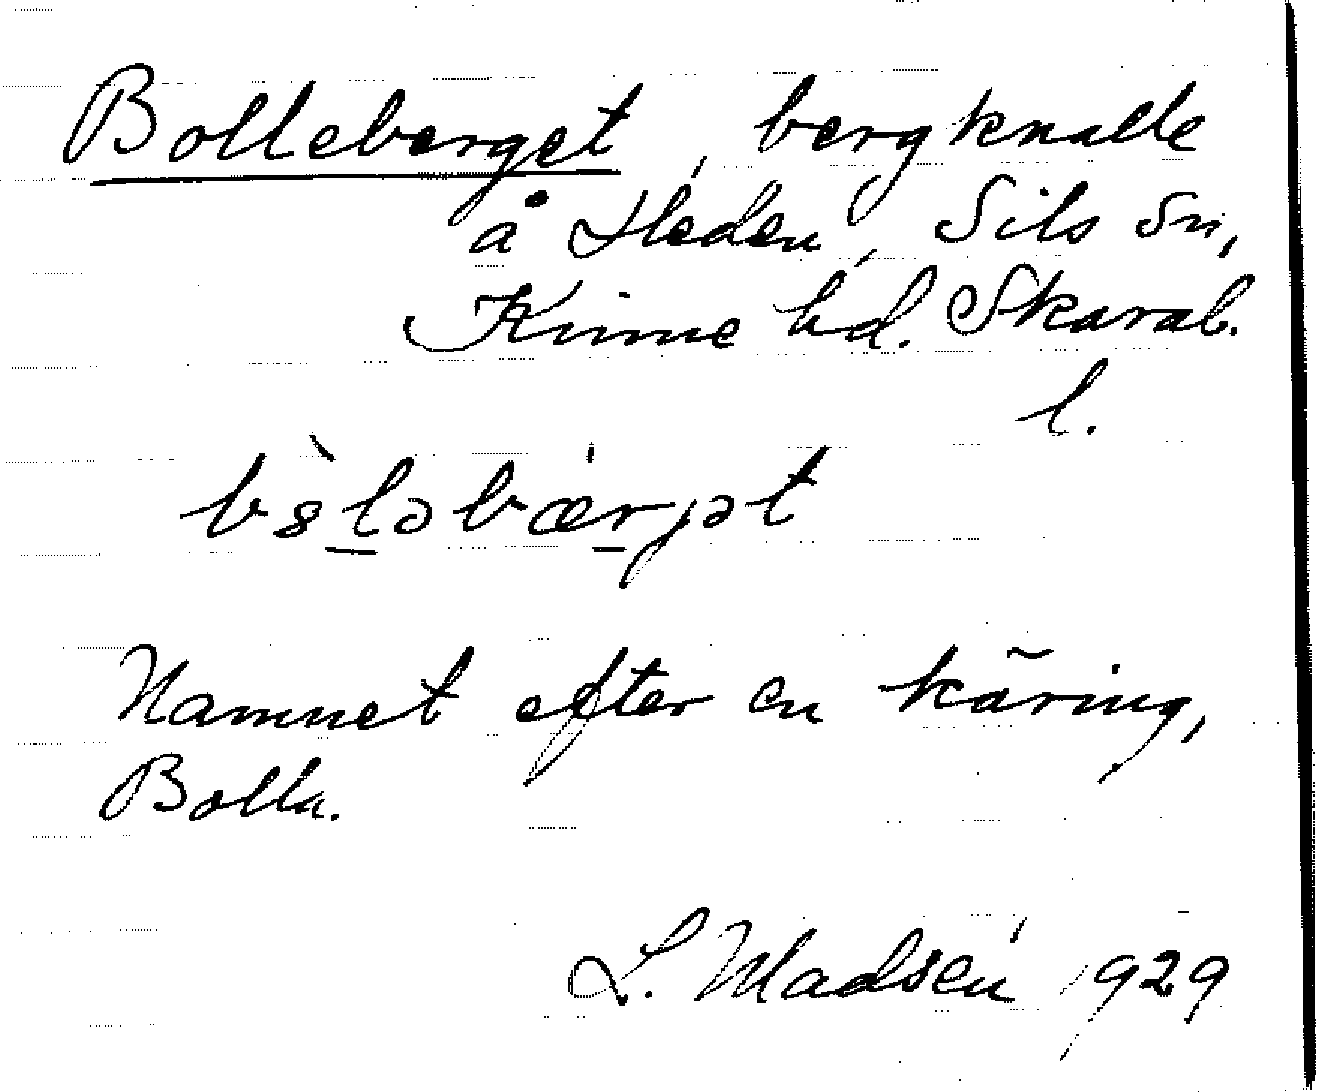 Bolleberget, bergknalle
å Heden, Sils sn,
Kinne hd. Skarab.
l.
bòləbær̠jət
Namnet efter en käring,
Bolla.
L. Madsén 1929